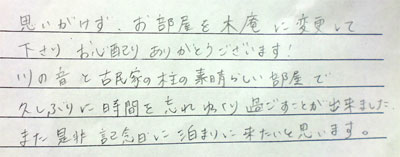 思いがけず、お部屋を木庵に変更して
下さり お心配り ありがとうございます!
川の音と古民家の柱の素晴らしい部屋で
久しぶりに時間を忘れゆっくり過ごすことが出来ました。
また是非 記念日に泊まりに来たいと思います。